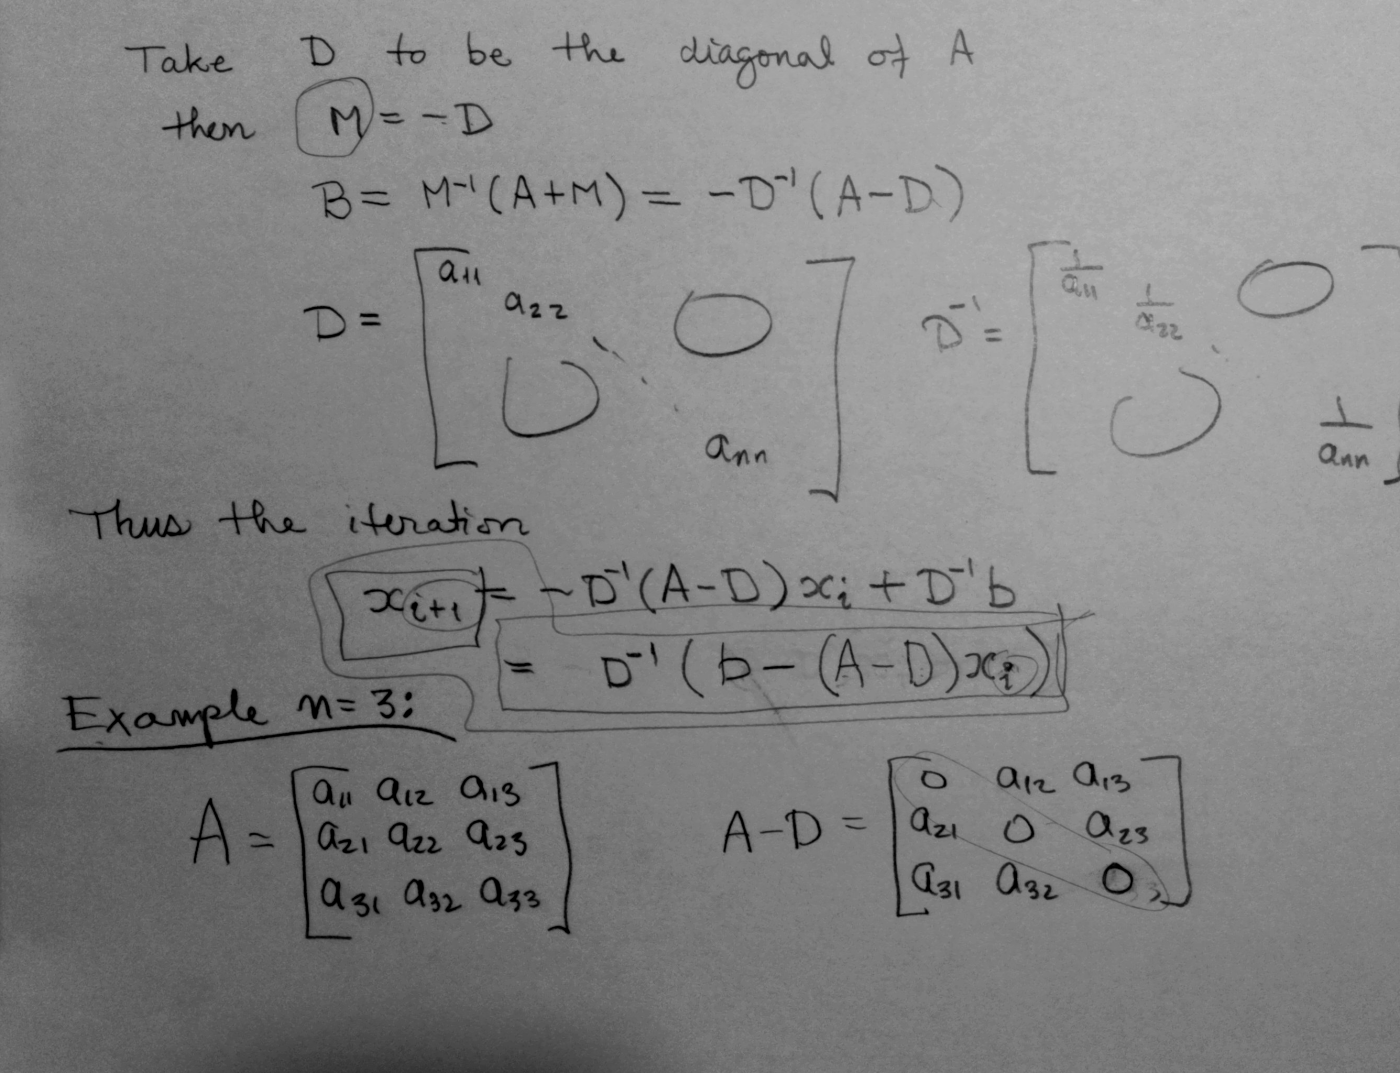 Take D to be the diagonal of A
then M = -D
B = M⁻¹(A+M) = -D⁻¹(A-D)
D = [a₁₁ a₂₂ ⋱ aₙₙ 0 0] D⁻¹ = [1/a₁₁ 1/a₂₂ ⋱ 1/aₙₙ 0 0]
Thus the iteration
xᵢ₊₁ = -D⁻¹(A-D)xᵢ + D⁻¹b
= D⁻¹(b-(A-D)xᵢ)
Example n=3:
a₁₁ a₁₂ a₁₃ 0 a₁₂ a₁₃
A = a₂₁ a₂₂ a₂₃ A-D = a₂₁ 0 a₂₃
a₃₁ a₃₂ a₃₃ a₃₁ a₃₂ 0